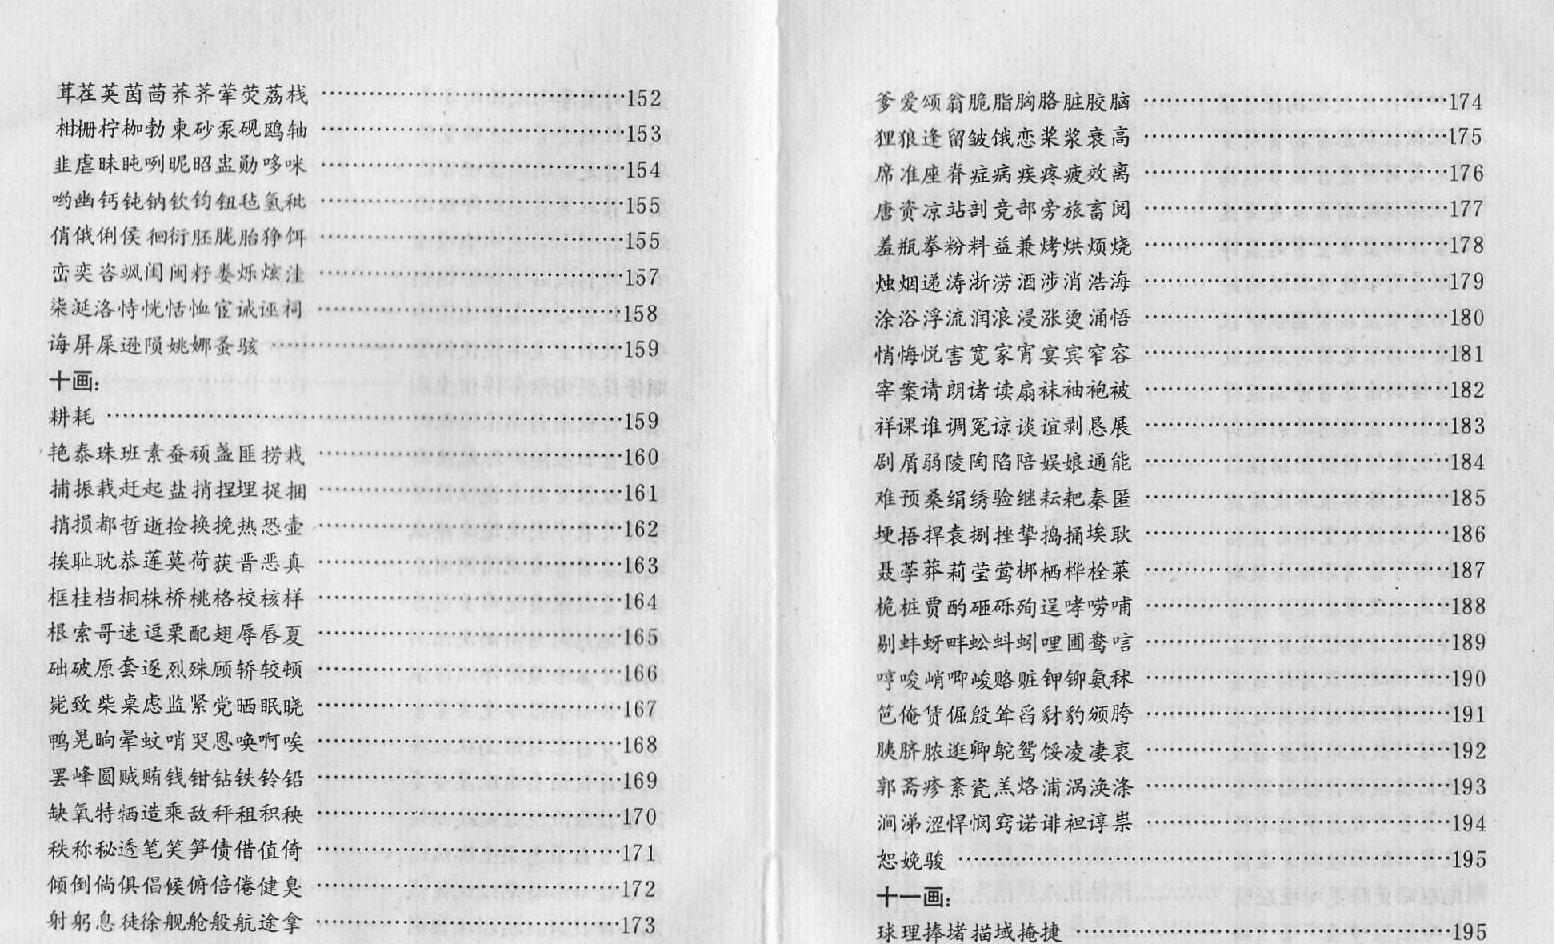 茸茬荚茵茴荞荠荤荧荔栈……152
柑栅柠枷勃柬砂泵砚鸥轴……153
韭虐昧盹咧昵昭盅勋哆咪……154
哟幽钙钝钠钦钧钮毡氢秕……155
俏俄俐侯徊衍胚胧胎狰饵……155
峦奕咨飒闺闽籽娄烁炫洼……157
柒涎洛恃恍恬恤宦诫诬祠……158
诲屏屎逊陨姚娜蚤骇……159
十画：
耕耗……159
艳泰珠班素蚕顽盏匪捞栽……160
捕振载赶起盐捎捏埋捉捆……161
捎损都哲逝捡换挽热恐壶……162
挨耻耽恭莲莫荷获晋恶真……163
框桂档桐株桥桃格校核样……164
根索哥速逗栗配翅辱唇夏……165
础破原套逐烈殊顾轿较顿……166
毙致柴桌虑监紧党晒眠晓……167
鸭晃晌晕蚊哨哭恩唤啊唉……168
罢峰圆贼贿钱钳钻铁铃铅……169
缺氧特牺造乘敌秤租积秧……170
秩称秘透笔笑笋债借值倚……171
倾倒倘俱倡候俯倍倦健臭……172
射躬息徒徐舰舱般航途拿……173
爹爱颂翁脆脂胸胳脏胶脑……174
狸狼逢留皱饿恋桨浆衰高……175
席准座脊症病疾疼疲效离……176
唐资凉站剖竞部旁旅畜阅……177
羞瓶拳粉料益兼烤烘烦烧……178
烛烟递涛浙涝酒涉消浩海……179
涂浴浮流润浪浸涨烫涌悟……180
悄悔悦害宽家宵宴宾窄容……181
宰案请朗诸读扇袜袖袍被……182
祥课谁调冤谅谈谊剥恳展……183
剧屑弱陵陶陷陪娱娘通能……184
难预桑绢绣验继耘耙秦匿……185
埂捂捍袁捌挫挚捣捅埃耿……186
聂荸莽莉莹莺梆栖桦栓莱……187
桅桩贾酌砸砾殉逞哮唠哺……188
剔蚌蚜畔蚣蚪蚓哩圃鸯唁……189
哼唆峭唧峻赂赃钾铆氨秫……190
笆俺赁倔殷耸舀豺豹颁胯……191
胰脐脓逛卿鸵鸳馁凌凄衷……192
郭斋疹紊瓷羔烙浦涡涣涤……193
涧涕涩悍悯窍诺诽袒谆祟……194
恕娩骏……195
十一画：
球理捧堵描域掩捷……195